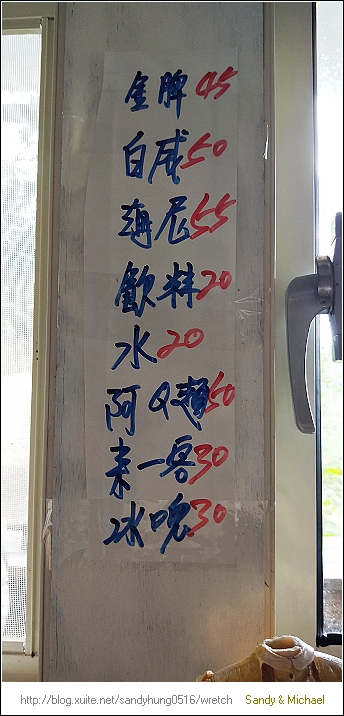 金牌45
白威50
海尼55
飲料20
水20
阿Q麵50
來一客30
冰塊30
http://blog.xuite.net/sandyhung0516/wretch Sandy & Michael